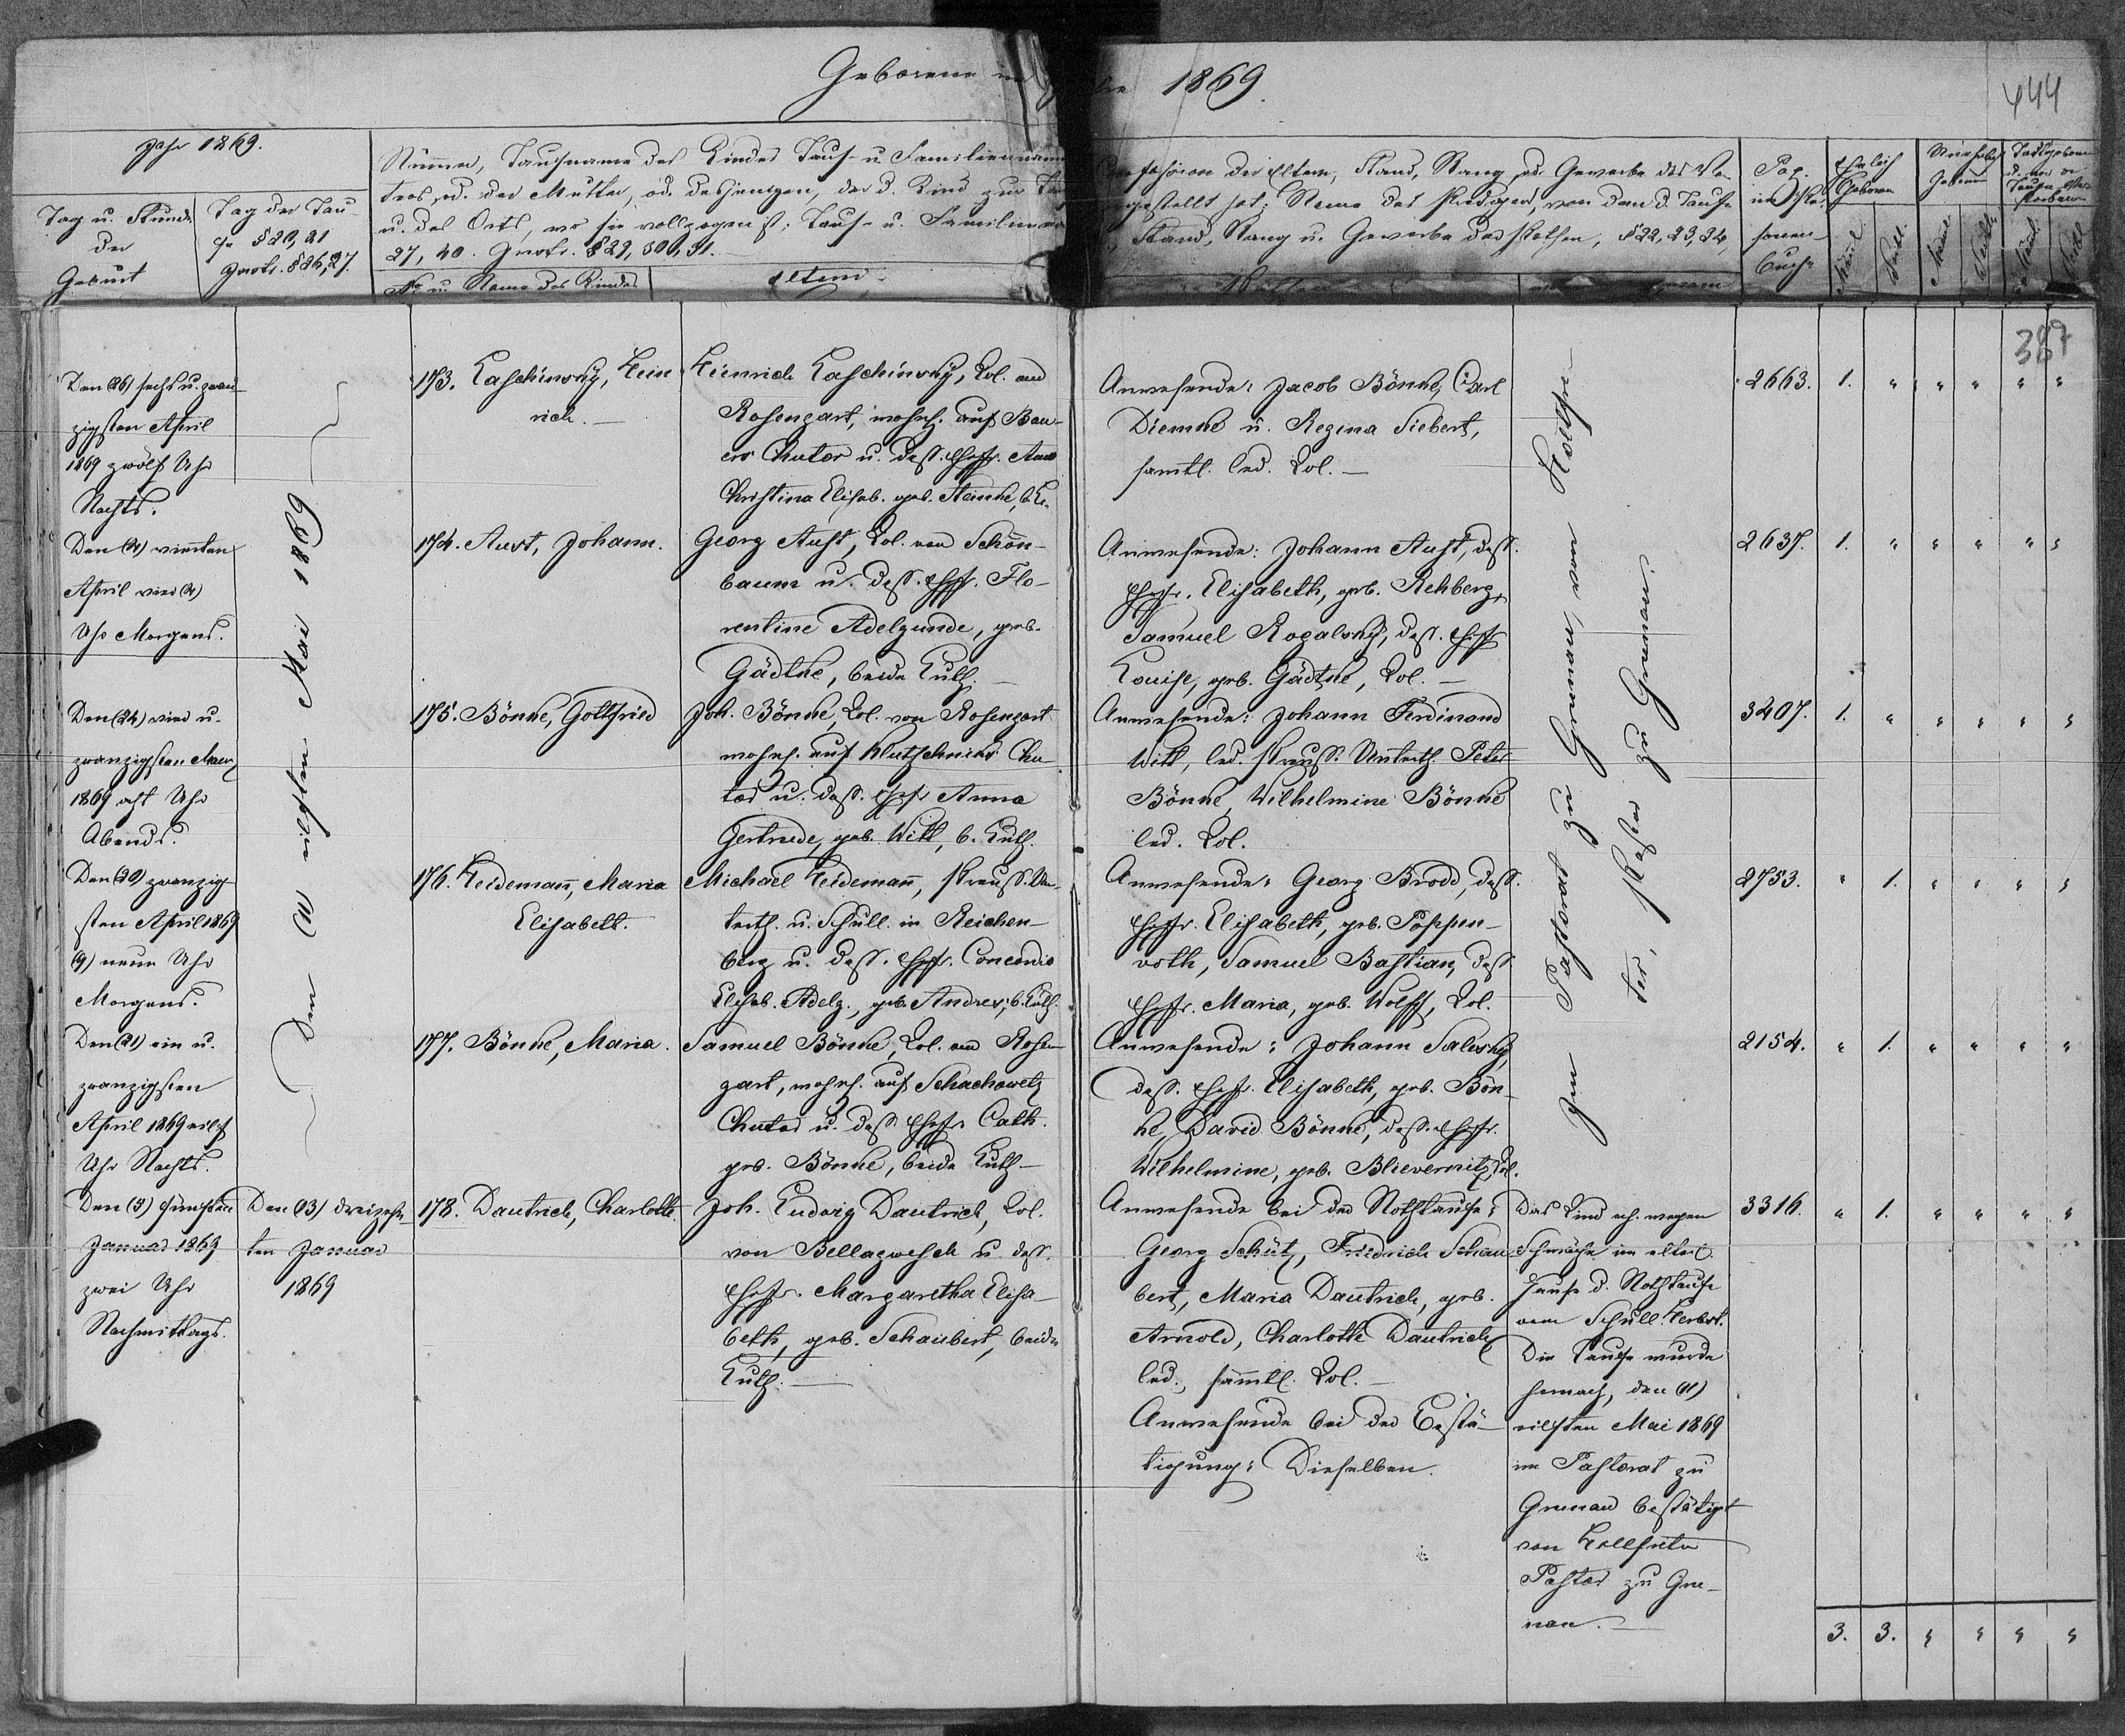 Geborene im
1869.
444
Jahr 1869.
Tag u. Stunde
der
Geburt
Tag der Tau-
fe § 20, 21
Gnots. § 26, 27.
Nummer, Taufname des Kindes Tauf- u. Familienname
ters, od. der Mutter, od. desjenigen, der d. Kind zur
u. des Orts, wo sie vollzogen ist; Tauf- u. Familienname
27, 40. § 29, 30, 31.
No u. Name des Kindes
Eltern
Confession der Eltern, Stand, Rang od. Gewerbe des Va-
gestellt hat; Name des Predigers, von dem d. Taufe
Stand, Rang u. Gewerbe der Pathen, § 22, 23, 24,
Pag.
im Per-
sonen-
buche
Ehelich
Geboren
Männl.
Weibl.
Unehelich
Geboren
Männl.
Weibl.
Todtgeborne
Männl.
Weibl.
387
Den (26) sechs u. zwan-
zigsten April
1869 zwölf Uhr
Nachts.
Den (11) eilften Mai 1869
173. Laschinsky, Hein
rich.
Heinrich Laschinsky, Col. aus
Rosengart, wohnh. auf Bau-
ers Chutor u. dess. Ehefr. Anna
Christina Elisab. geb. Steinke, b. L.
Anwesende: Jacob Bönke, Carl
Diemke u. Regina Siebert,
samtl. led. Col.
Im Pastorat zu Grunau, von Holtfre-
ter, Pastor zu Grunau.
2663. 1. " " " " "
Den (4) vierten
April vier (4)
Uhr Morgens.
174. Aust, Johann.
Georg Aust, Col. von Schön-
baum u. dess. Ehefr. Flo-
rentine Adelgunde, geb.
Gädtke, beide Luth.
Anwesende: Johann Aust, dess.
Ehefr. Elisabeth, geb. Rehberg,
Samuel Rogalsky, dess. Ehefr.
Louise, geb. Gädtke, Col.
2637. 1. " " " " "
Den (24) vier u.
zwanzigsten Maerz
1869 acht Uhr
Abends.
175. Bönke, Gottfried
Joh. Bönke, Col. von Rosengart
wohnh. auf Klutschniks Chu-
tor u. dess. Ehefr. Anna
Gertrude, geb. Witt, b. Luth.
Anwesende: Johann Ferdinand
Witt, led. Preuss. Unterth. Peter
Bönke, Wilhelmine Bönke
led. Col.
3207. 1. " " " " "
Den (20) zwanzig
sten April 1869
(9) neun Uhr
Morgens.
176. Heidemañ, Maria
Elisabeth.
Michael Heidemañ, Preuss. Un-
terth. u. Schull. in Reichen-
berg u. dess. Ehefr. Concordia
Elisab. Adelg., geb. Andres, b. Luth.
Anwesende: Georg Brodd, dess.
Ehefr. Elisabeth, geb. Poppen-
roth, Samuel Bastian, dess
Ehefr. Maria, geb. Wolff, Col.
2753. " 1. " " " "
Den (21) ein u.
zwanzigsten
April 1869 eilf
Uhr Nachts.
177. Bönke, Maria.
Samuel Bönke, Col. aus Rosen
gart, wohnh. auf Schachowetz
Chutor u. dess Ehefr. Cath.
geb. Bönke, beide Luth.
Anwesende: Johann Salesky,
dess. Ehefr. Elisabeth, geb. Bön-
ke, David Bönke, dess. Ehefr.
Wilhelmine, geb. Blievernitz, Col.
2154. " 1. " " " "
Den (5) fünften
Januar 1869
zwei Uhr
Nachmittags.
Den (13) dreizehn
ten Januar
1869
178. Dautrich, Charlotte.
Joh. Ludwig Dautrich, Col.
von Bellagwesch u. dess.
Ehefr. Margaretha Elisa-
beth, geb. Schaubert, beide
Luth.
Anwesende bei der Nothtaufe:
Georg Schütz, Friedrich Schau
bert, Maria Dautrich, geb.
Arnold, Charlotte Dautrich
led., sämtl. Col.
Anwesende bei der Bestä-
tigung: Dieselben.
Das Kind erh. wegen
Schwäche im elterl.
Hause d. Nothtaufe
vom Schull. Herbst.
Die Taufe wurde
hernach, den (11)
eilften Mai 1869
im Pastorat zu
Grunau bestätigt
von Holtfreter
Pastor zu Gru-
nau.
3316. " 1. " " " "
3. 3. " " " "